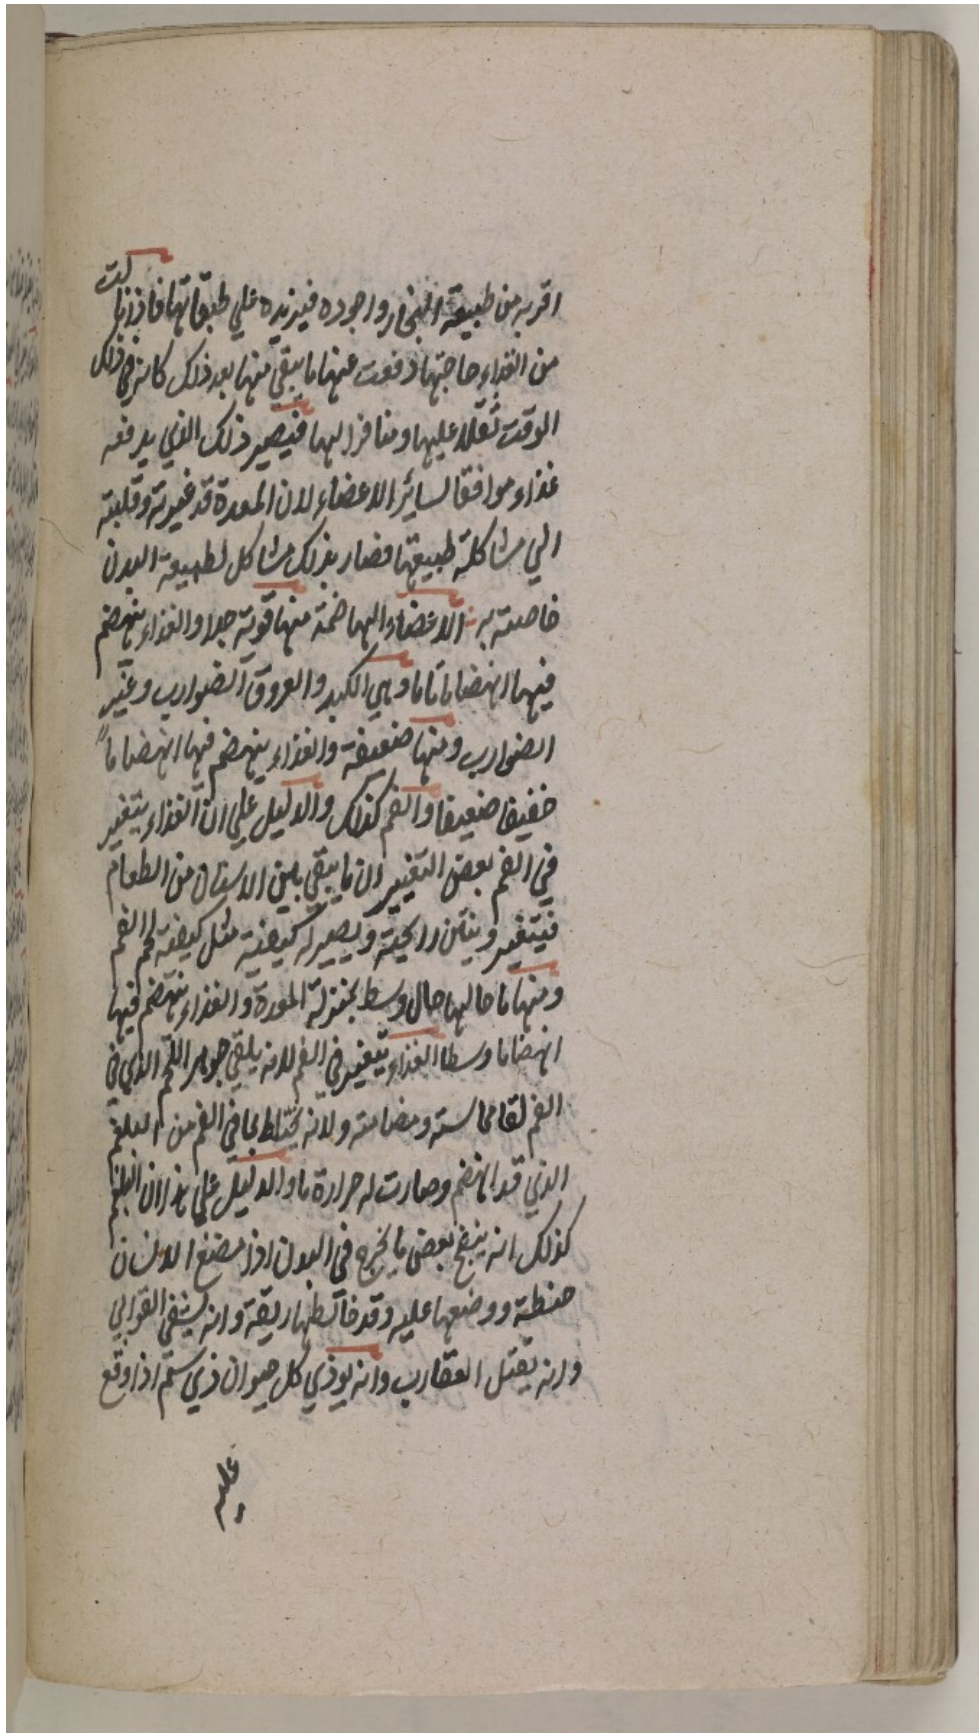 اقربه من طبيعة البخار واجوده فيزيده علي طبقاتها فاذا نالت
من الغذاء حاجتها دفعت عنها ما يبقي منها بعد ذلك كانه في ذلك
الوقت ثقلا عليها ومنافرا لها فيصير ذلك الذي يدفعه
غذاء موافقا لسائر الاعضاء لان المعدة قد غيرته وقلبته
الي مشاكلة طبيعتها فصار بذلك مشاكل لطبيعة البدن
خاصته به الاعضاء الهاضمة منها قوية جدا والغذاء ينهضم
فيها انهضاما تاما وهي الكبد والعروق الضوارب وغير
الضوارب ومنها ضعيفة والغذاء ينهضم فيها انهضاماً
خفيفا ضعيفا والفم كذلك والدليل علي ان الغذاء يتغير
في الفم بعض التغيير ان ما يبقي بين الاسنان من الطعام
فيتغير وينتن رايحته ويصير له كيفية مثل كيفية لحم الفم
ومنها ما حالها حال وسط بمنزلة المعدة والغذاء ينهضم فيها
انهضاما وسطا الغذاء يتغير في الفم لانه يلقي جوهر اللحم الذي في
الفم لقا مماسته ومضامته ولانه يختلط بما في الفم من البلغم
الذي قد انهضم وصارت له حرارة ما والدليل علي هذا ان البلغم
كذلك انه ينضج بعض ما يخرج في البدن اذا مضغ الانسان
حنطة ووضعها عليه وقد خالطها ريقه وانه يشفي القوابي
وانه يقتل العقارب وانه يوذي كل حيوان ذي سم اذا وقع
عليه